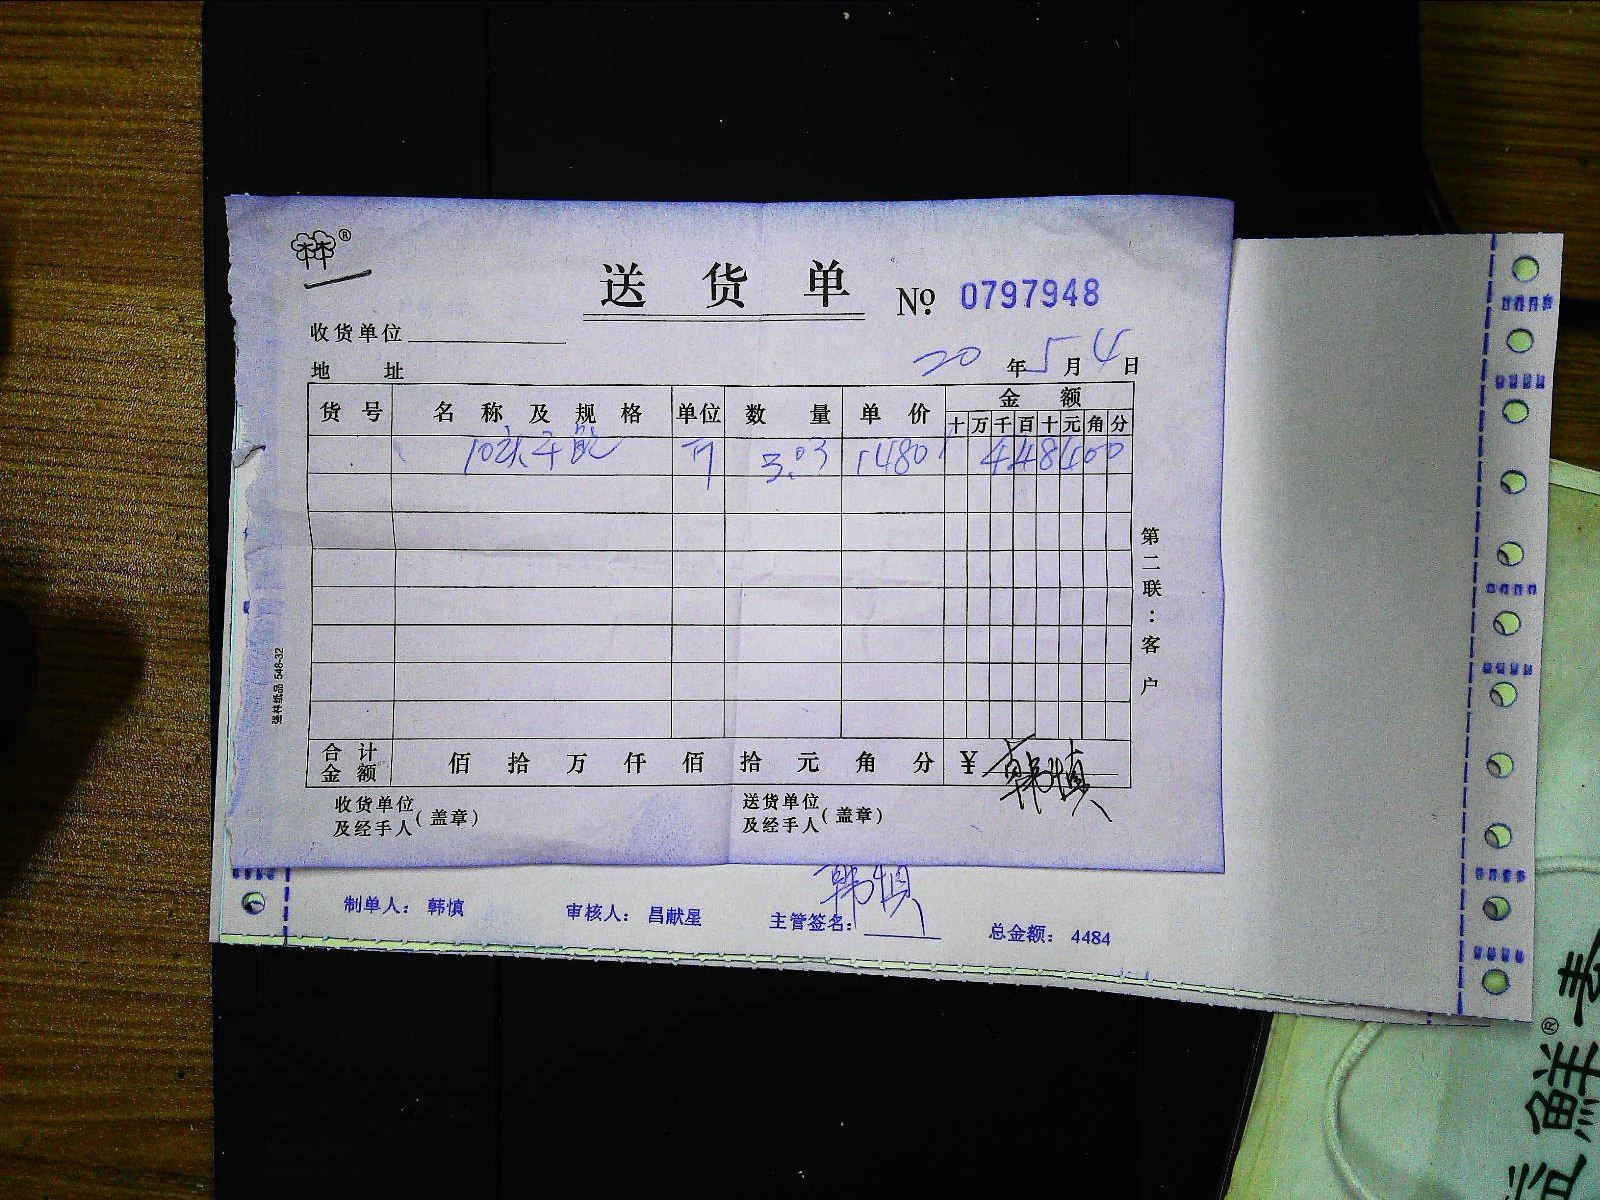 林®
送 货 单 № 0797948
收货单位
20 年 5 月 4 日
地 址
货 号 名 称 及 规 格 单位 数 量 单 价 金 额
十 万 千 百 十 元 角 分
3.03 1480 448400
第二联：客户
强林纸品 548-32
合 计 金 额 佰 拾 万 仟 佰 拾 元 角 分 ¥ 韩慎
收货单位 及经手人（盖章） 送货单位 及经手人（盖章）
韩慎
制单人： 韩慎 审核人： 昌献星 主管签名： 总金额： 4484
鲜
®